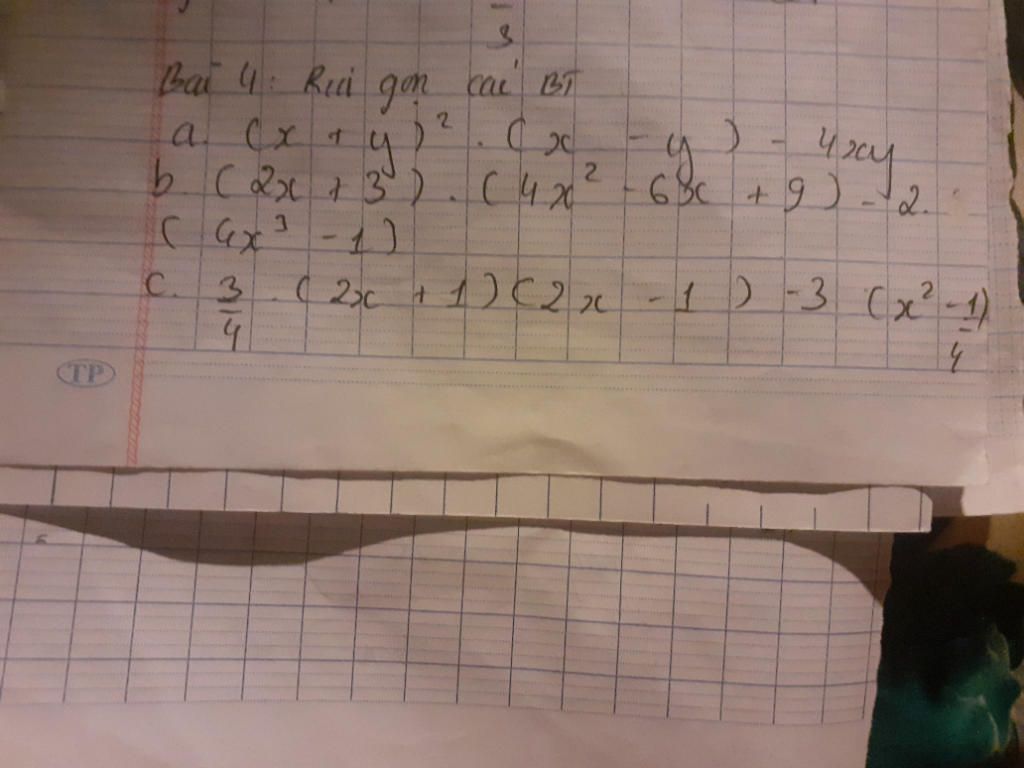 3
Bài 4: Rút gọn các BT
a. (x + y)² . (x - y) - 4xy
b. (2x + 3) . (4x² - 6x + 9) - 2.
(4x³ - 1)
c. 3/4 . (2x + 1)(2x - 1) - 3 (x² - 1/4)
TP